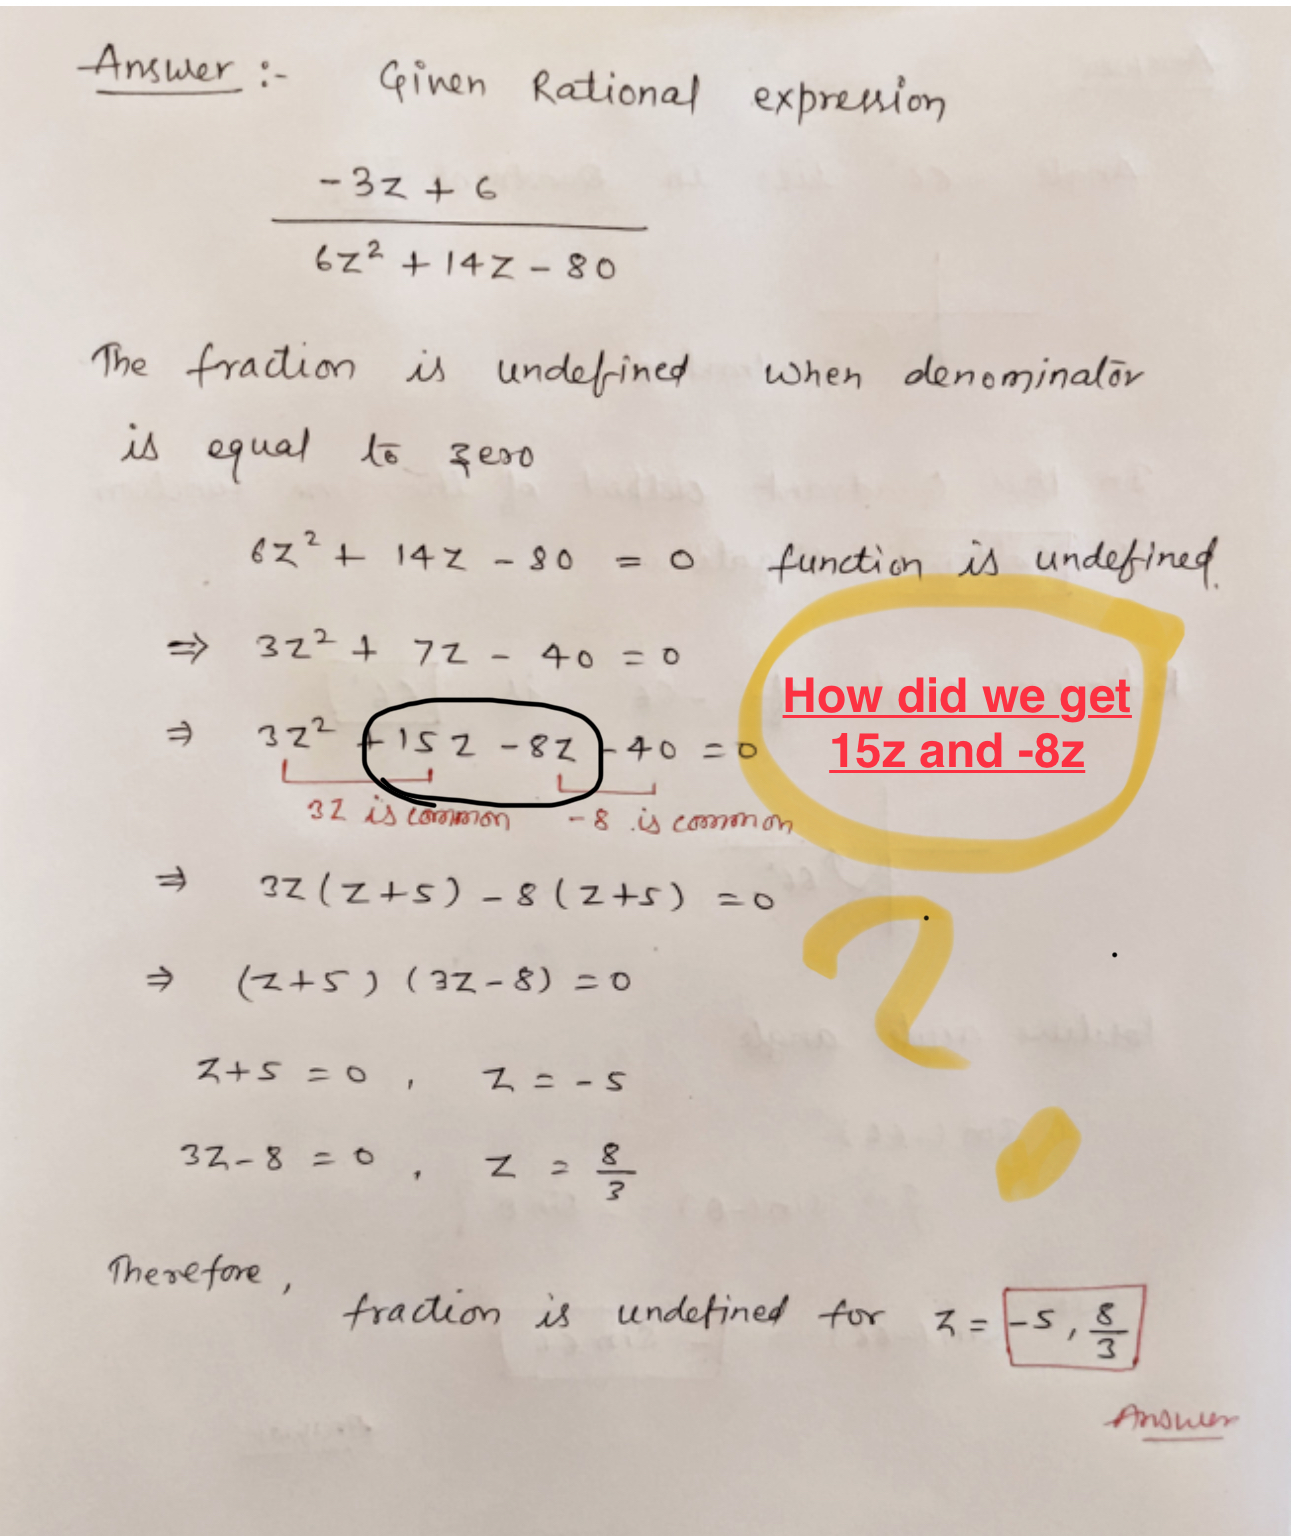 Answer :- Given Rational expression
-3z + 6
6z² + 14z - 80
The fraction is undefined when denominator
is equal to zero
6z² + 14z - 80 = 0 function is undefined.
⇒ 3z² + 7z - 40 = 0
⇒ 3z² +15z -8z -40 = 0
How did we get
15z and -8z
3z is common -8 is common
⇒ 3z(z+5) - 8(z+5) = 0
?
⇒ (z+5) (3z-8) = 0
z+5 = 0 , z = -5
3z-8 = 0 , z = 8/3
Therefore,
fraction is undefined for z = -5, 8/3
Answer